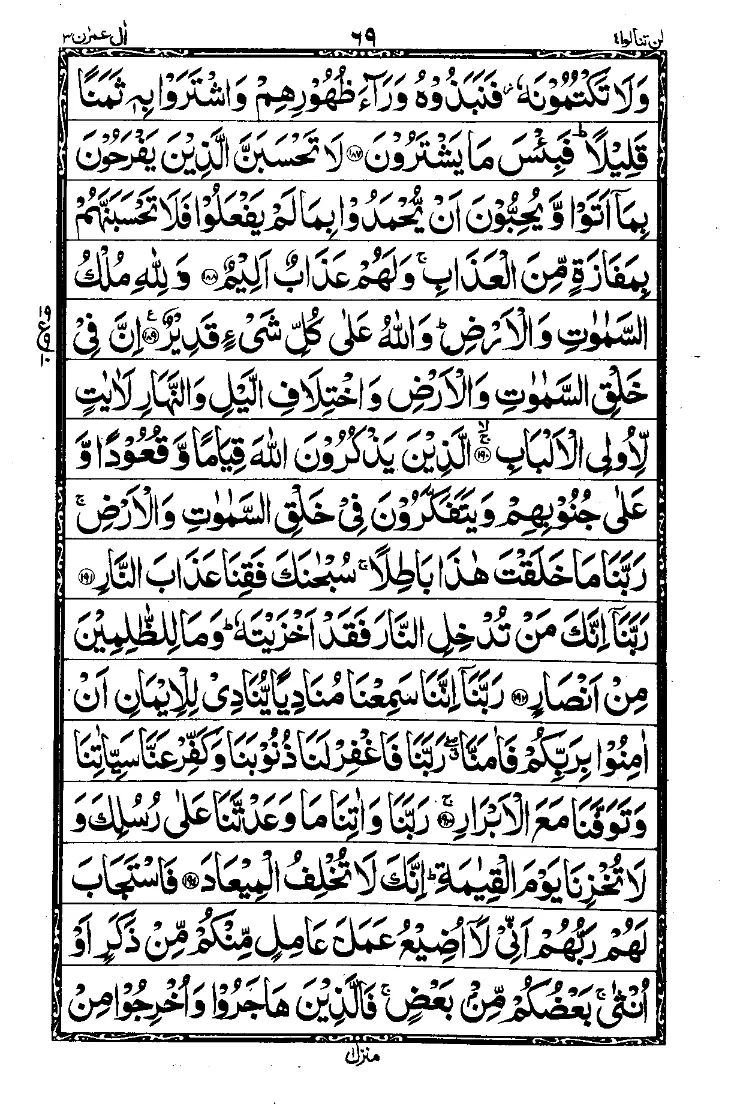 لن تنالوا۴ ۶۹ اٰل عمرٰن۳
وَلَا تَكْتُمُوْنَهٗ ؗ فَنَبَذُوْهُ وَرَآءَ ظُهُوْرِهِمْ وَاشْتَرَوْا بِهٖ ثَمَنًا
قَلِيْلًا ؕ فَبِئْسَ مَا يَشْتَرُوْنَ ۝۱۸۷ لَا تَحْسَبَنَّ الَّذِيْنَ يَفْرَحُوْنَ
بِمَاۤ اَتَوْا وَّيُحِبُّوْنَ اَنْ يُّحْمَدُوْا بِمَا لَمْ يَفْعَلُوْا فَلَا تَحْسَبَنَّهُمْ
بِمَفَازَةٍ مِّنَ الْعَذَابِ ۚ وَلَهُمْ عَذَابٌ اَلِيْمٌ ۝۱۸۸ وَلِلّٰهِ مُلْكُ
السَّمٰوٰتِ وَالْاَرْضِ ؕ وَاللّٰهُ عَلٰى كُلِّ شَیْءٍ قَدِيْرٌ ۝۱۸۹ ع اِنَّ فِیْ
خَلْقِ السَّمٰوٰتِ وَالْاَرْضِ وَاخْتِلَافِ الَّيْلِ وَالنَّهَارِ لَاٰيٰتٍ
لِّاُولِی الْاَلْبَابِ ۝۱۹۰ۚۙ الَّذِيْنَ يَذْكُرُوْنَ اللّٰهَ قِيَامًا وَّقُعُوْدًا وَّ
عَلٰى جُنُوْبِهِمْ وَيَتَفَكَّرُوْنَ فِیْ خَلْقِ السَّمٰوٰتِ وَالْاَرْضِ ۚ
رَبَّنَا مَا خَلَقْتَ هٰذَا بَاطِلًا ۚ سُبْحٰنَكَ فَقِنَا عَذَابَ النَّارِ ۝۱۹۱
رَبَّنَاۤ اِنَّكَ مَنْ تُدْخِلِ النَّارَ فَقَدْ اَخْزَيْتَهٗ ؕ وَمَا لِلظّٰلِمِيْنَ
مِنْ اَنْصَارٍ ۝۱۹۲ رَبَّنَاۤ اِنَّنَا سَمِعْنَا مُنَادِيًا يُّنَادِیْ لِلْاِيْمَانِ اَنْ
اٰمِنُوْا بِرَبِّكُمْ فَاٰمَنَّا ۖۗ رَبَّنَا فَاغْفِرْ لَنَا ذُنُوْبَنَا وَكَفِّرْ عَنَّا سَيِّاٰتِنَا
وَتَوَفَّنَا مَعَ الْاَبْرَارِ ۝۱۹۳ۚ رَبَّنَا وَاٰتِنَا مَا وَعَدْتَّنَا عَلٰى رُسُلِكَ وَ
لَا تُخْزِنَا يَوْمَ الْقِيٰمَةِ ؕ اِنَّكَ لَا تُخْلِفُ الْمِيْعَادَ ۝۱۹۴ فَاسْتَجَابَ
لَهُمْ رَبُّهُمْ اَنِّیْ لَاۤ اُضِيْعُ عَمَلَ عَامِلٍ مِّنْكُمْ مِّنْ ذَكَرٍ اَوْ
اُنْثٰى ۚ بَعْضُكُمْ مِّنْۢ بَعْضٍ ۚ فَالَّذِيْنَ هَاجَرُوْا وَاُخْرِجُوْا مِنْ
منزل۱